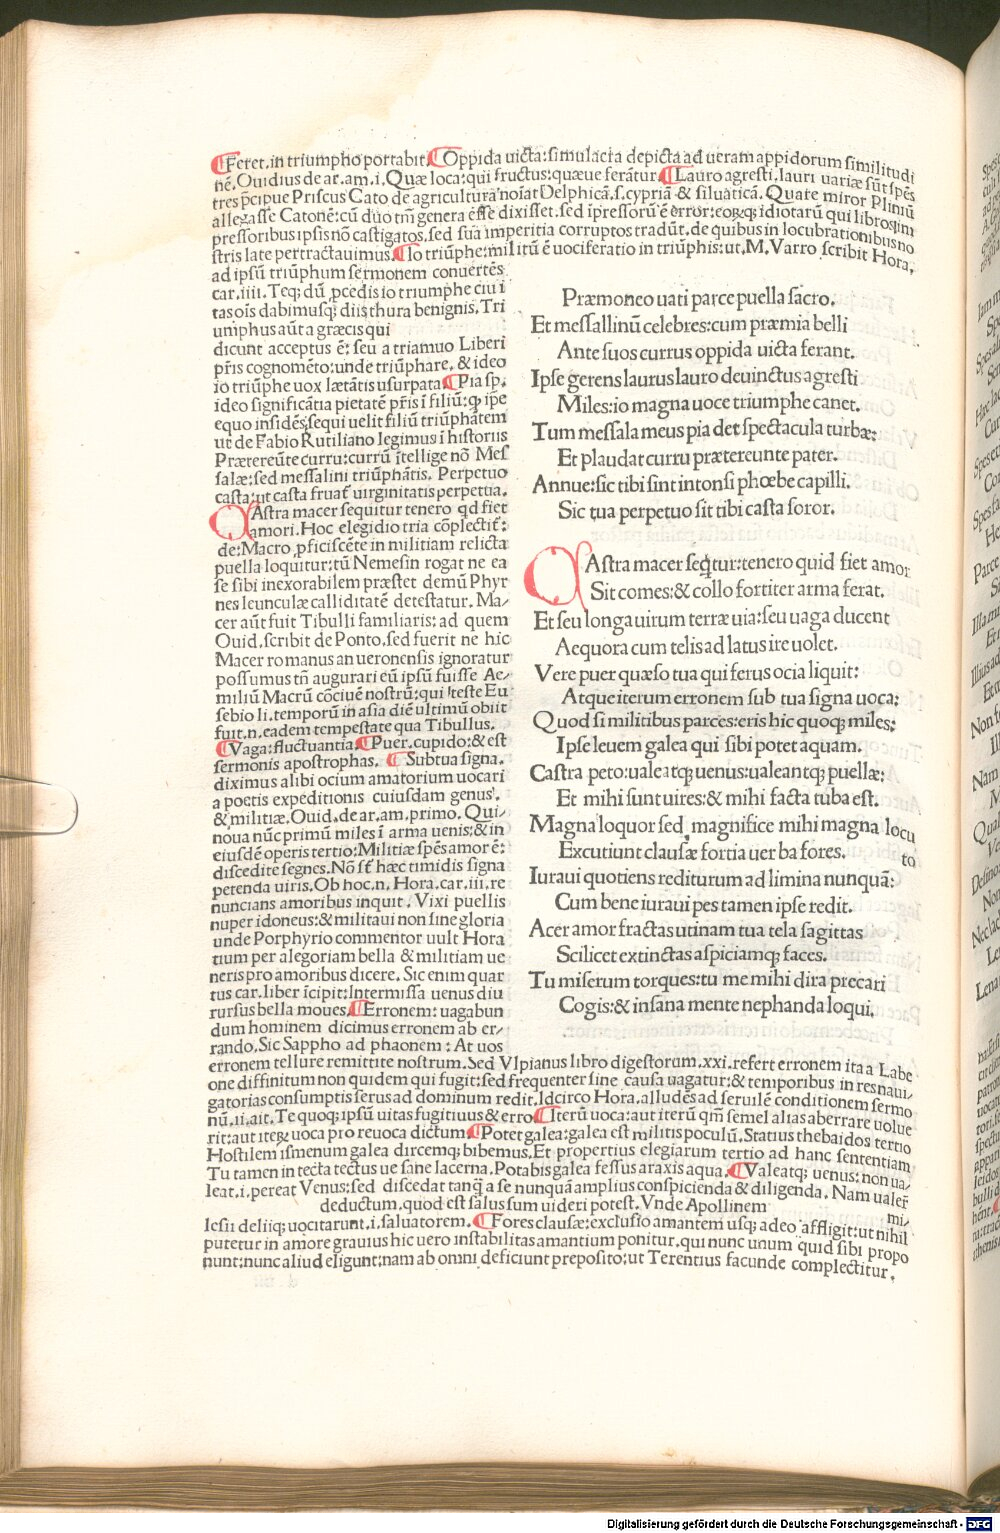 Feret.in triumpho portabit. Oppida uicta:simulacra depicta ad ueram appidorum similitudi
nē.Ouidius de ar.am.i.Quæ loca:qui fructus:quæue ferātur. Lauro agresti.lauri uariæ sūt spēs
tres p̄cipue Priscus Cato de agricultura noīat Delphicā.s.cypriā & siluaticā. Quare miror Pliniū
allegasse Catonē:cū duo tm̄ genera esse dixisset.sed īpressorū ē error:eorꝗ idiotarū qui libros īm
pressoribus ipsis nō castigatos.sed sua imperitia corruptos tradūt.de quibus in locubrationibus no
stris late pertractauimus. Io triūphe:militū ē uociferatio in triūphis:ut.M.Varro scribit Hora.
ad ipsū triūphum sermonem conuertēs
car.iiii.Teq; dū ꝓcedis io triumphe ciui
tas oīs dabimusq; diis thura benignis.Tri
umphus aūt a græcis qui
dicunt acceptus ē: seu a triamuo Liberi
pr̄is cognomēto:unde triūphare. & ideo
io triūphe uox lætātis usurpata. Pia sp.
ideo significātia pietatē pr̄is ī filiū:ꝙ ip̄e
equo insidēs;sequi uelit filiū triūphātem
ut de Fabio Rutiliano legimus ī historiis
Prætereūte curru:currū ītellige nō Mes
salæ:sed messalini triūphātis. Perpetuo
casta:ut casta fruat̄ uirginitatis perpetia.
CAstra macer sequitur tenero qd fiet
amori.Hoc elegidio tria cōplectit̄:
de:Macro ꝓficiscēte in militiam relicta
puella loquitur:tū Nemesin rogat ne ea
se sibi inexorabilem præstet demū Phyr
nes leunculæ calliditatē detestatur. Ma/
cer aūt fuit Tibulli familiaris: ad quem
Ouid.scribit de Ponto.sed fuerit ne hic
Macer romanus an ueronensis ignoratur
possumus tn̄ augurari eū ipsū fuisse Ae/
miliū Macrū cōciuē nostrū:qui teste Eu
sebio li.temporū in asia diē ultimū obiit
fuit.n.eadem tempestate qua Tibullus.
Vaga:fluctuantia. Puer.cupido:& est
sermonis apostrophas. Sub tua signa.
diximus alibi ocium amatorium uocari
a poetis expeditionis cuiusdam genus.
& militiæ.Ouid.de ar.am.primo. Qui/
noua nūc primū miles ī arma uenis:& in
eiusdē operis tertio:Militiæ spēs amor ē:
discedite segnes.Nō st̄ hæc timidis signa
petenda uiris.Ob hoc.n.Hora.car.iii.re
nuncians amoribus inquit. Vixi puellis
nuper idoneus:& militaui non sine gloria
unde Porphyrio commentor uult Hora
tium per alegoriam bella & militiam ue
neris pro amoribus dicere.Sic enim quar
tus car.liber īcipit:Intermissa uenus diu
rursus bella moues. Erronem:uagabun
dum hominem dicimus erronem ab er/
rando.Sic Sappho ad phaonem: At uos
erronem tellure remittite nostrum.Sed Vlpianus libro digestorum.xxi.refert erronem ita a Labe
one diffinitum non quidem qui fugit:sed frequenter sine causa uagatur:& temporibus in res naui/
gatorias consumptis serus ad dominum redit.Idcirco Hora.alludēs ad seruilē conditionem sermo
nū.ii.ait.Te quoq; ipsū uitas fugitiuus & erro. Iterū uoca:aut iterū qm̄ semel alias aberrare uolue
rit:aut iteꝶ uoca pro reuoca dictum. Poter galea:galea est militis poculū.Statius thebaidos tertio
Hostilem ismenum galea dircemq; bibemus.Et propertius elegiarum tertio ad hanc sententiam
Tu tamen in tecta tectus ue sane lacerna.Potabis galea fessus araxis aqua. Valeatq; uenus:non ua/
leat.i.pereat Venus:sed discedat tanq̄ a se nunquā amplius conspicienda & diligenda. Nam ualer̄
deductum.quod est saluş sum uideri potest.Vnde Apollinem mi/
lesii deliiq; uocitarunt.i.saluatorem. Fores clausæ:exclusio amantem usq; adeo affligit:ut nihil
putetur in amore grauius hic uero instabilitas amantium ponitur.qui nunc unum quid sibi propo
nunt:nunc aliud eligunt:nam ab omni deficiunt preposito:ut Terentius facunde complectitur.
Præmoneo uati parce puella sacro.
Et messallinū celebres:cum præmia belli
Ante suos currus oppida uicta ferant.
Ipse gerens laurus lauro deuinctus agresti
Miles:io magna uoce triumphe canet.
Tum messala meus pia det spectacula turbæ:
Et plaudat curru prætereunte pater.
Annue:sic tibi sint intonsi phœbe capilli.
Sic tua perpetuo sit tibi casta soror.
CAstra macer seq̄tur:tenero quid fiet amor
Sit comes:& collo fortiter arma ferat.
Et seu longa uirum terræ uia:seu uaga ducent
Aequora cum telis ad latus ire uolet.
Vere puer quæso tua qui ferus ocia liquit:
Atque iterum erronem sub tua signa uoca:
Quod si militibus parces:eris hic quoq; miles:
Ipse leuem galea qui sibi potet aquam.
Castra peto:ualeatq; uenus:ualeantq; puellæ:
Et mihi sunt uires:& mihi facta tuba est.
Magna loquor sed magnifice mihi magna locu
to
Excutiunt clausæ fortia uer ba fores.
Iuraui quotiens rediturum ad limina nunquā:
Cum bene iuraui pes tamen ipse redit.
Acer amor fractas utinam tua tela sagittas
Scilicet extinctas aspiciamq; faces.
Tu miserum torques:tu me mihi dira precari
Cogis:& insana mente nephanda loqui.
Digitalisierung gefördert durch die Deutsche Forschungsgemeinschaft - DFG